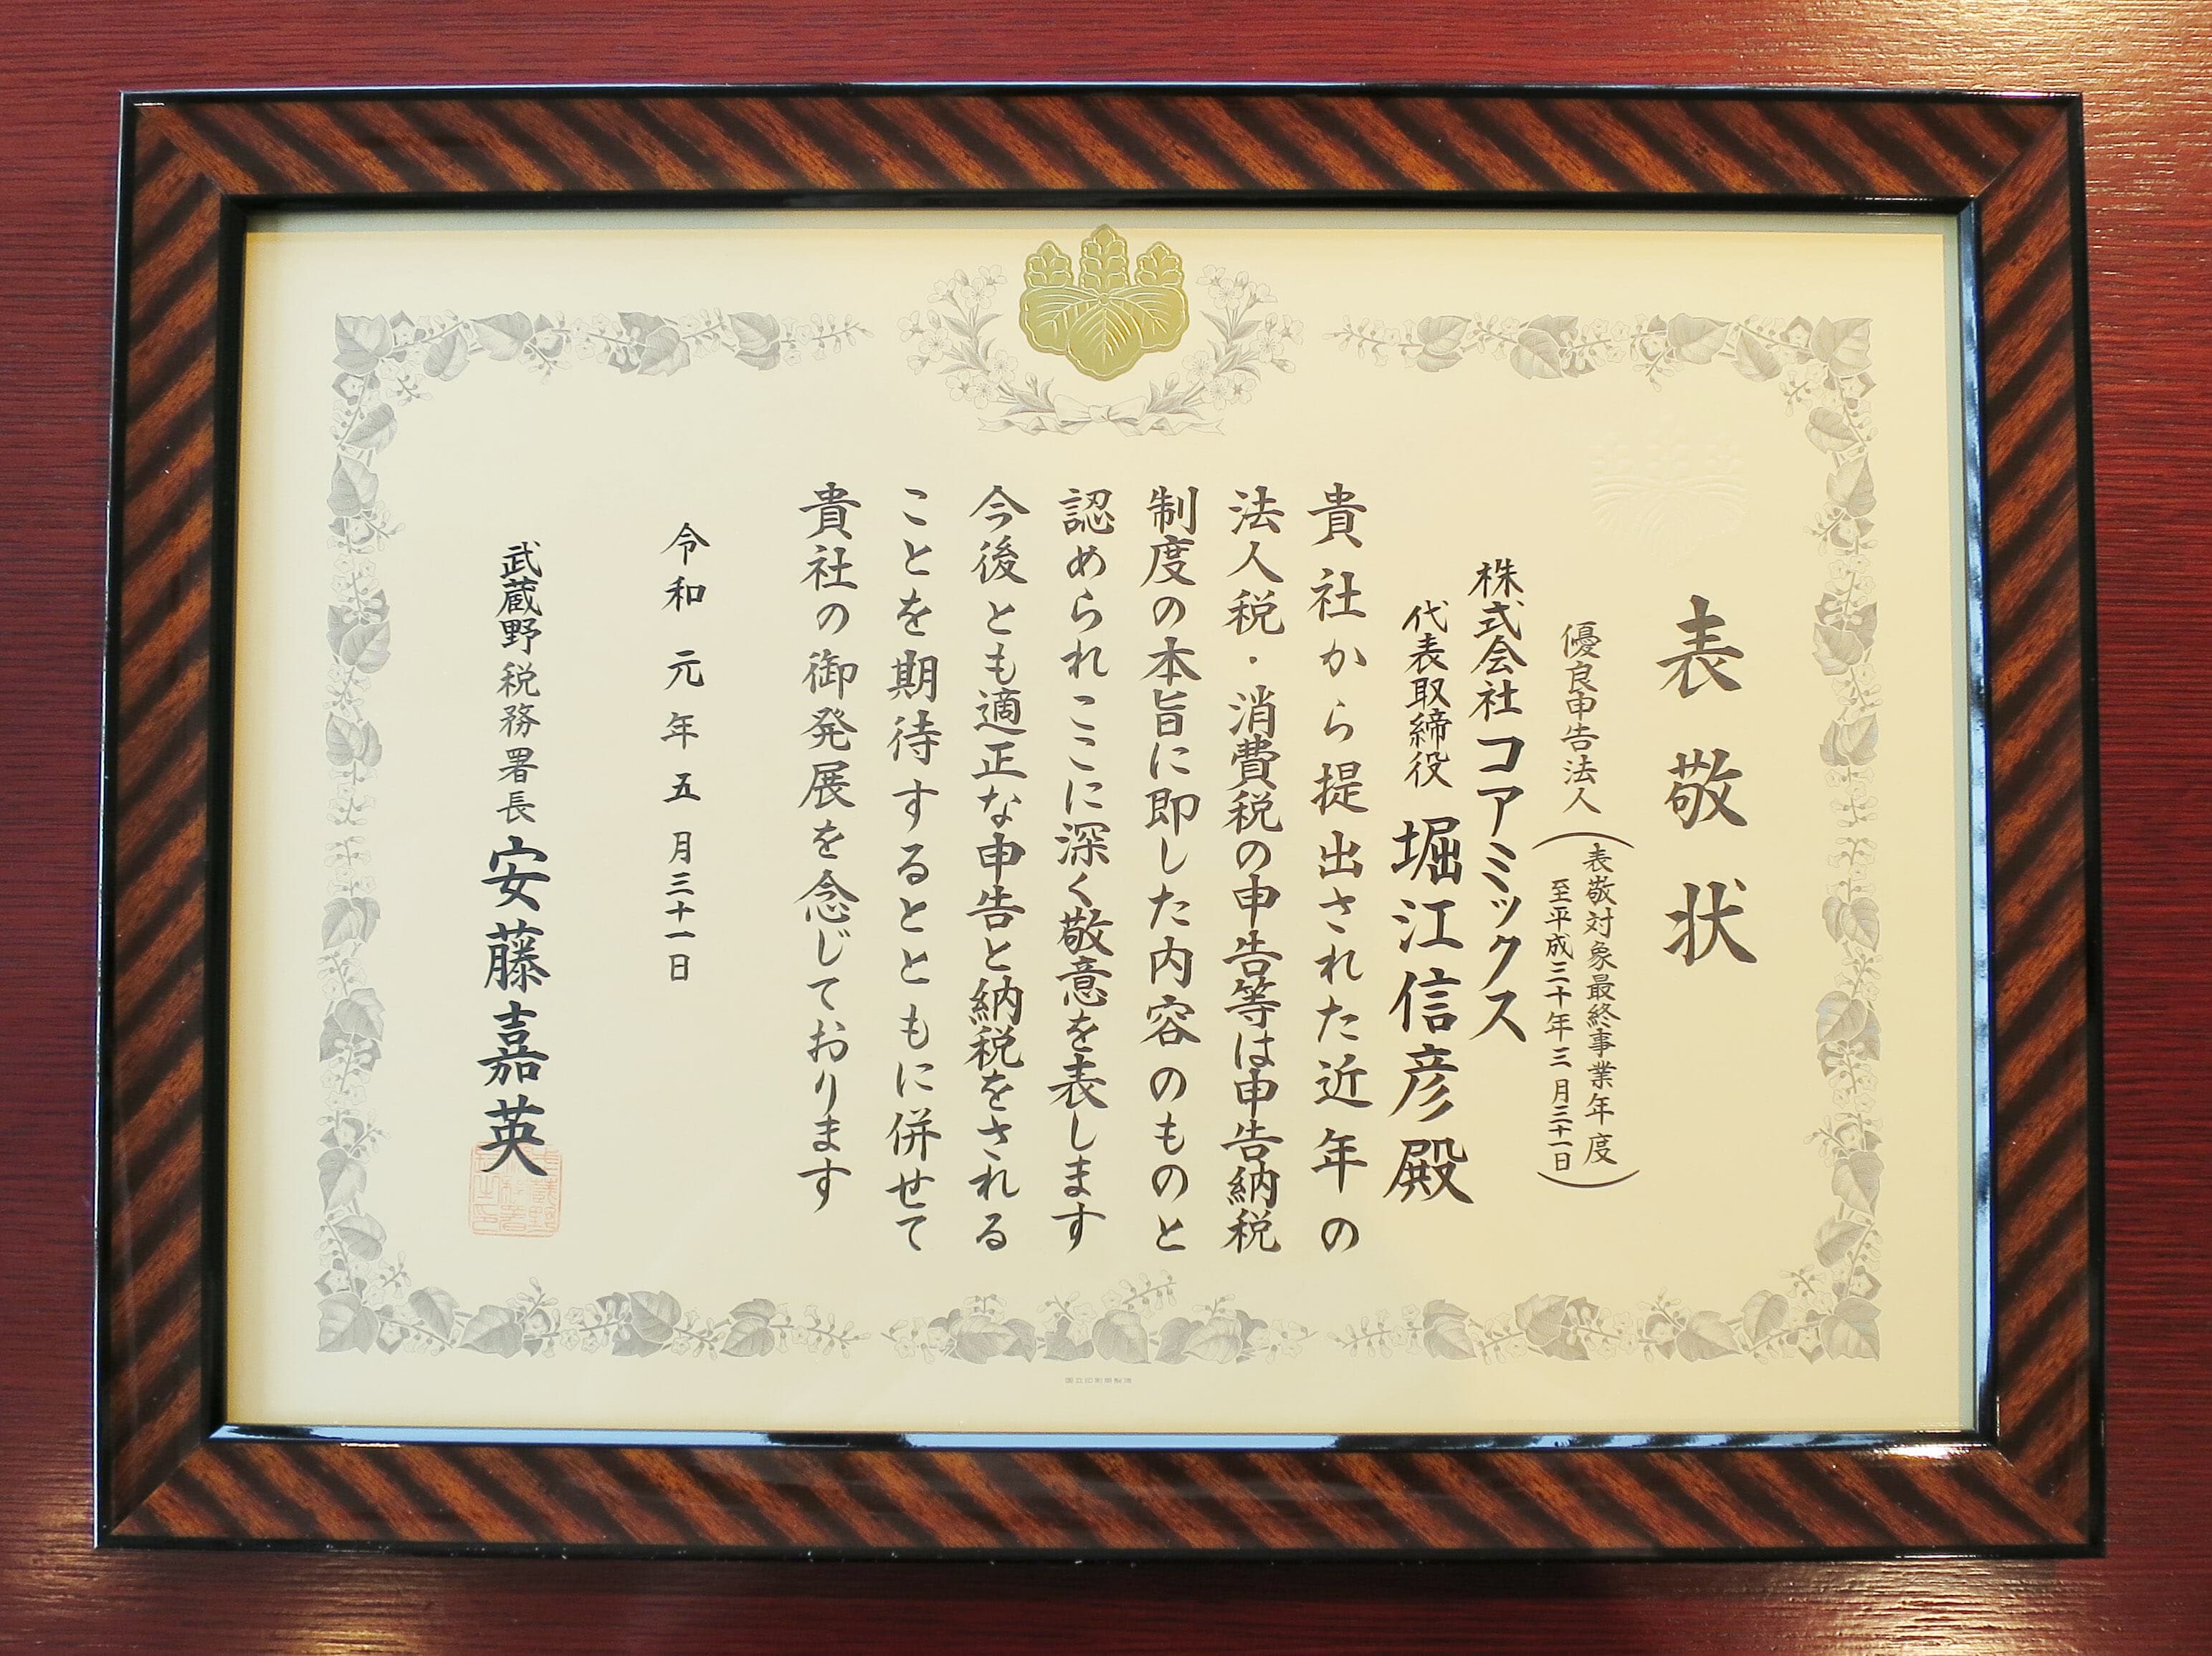 表敬状
優良申告法人
(表敬対象最終事業年度
至平成三十年三月三十一日)
株式会社コアミックス
代表取締役 堀江信彦殿
貴社から提出された近年の
法人税・消費税の申告等は申告納税
制度の本旨に即した内容のものと
認められここに深く敬意を表します
今後とも適正な申告と納税をされる
ことを期待するとともに併せて
貴社の御発展を念じております
令和元年五月三十一日
武蔵野税務署長 安藤嘉英
国立印刷局製造